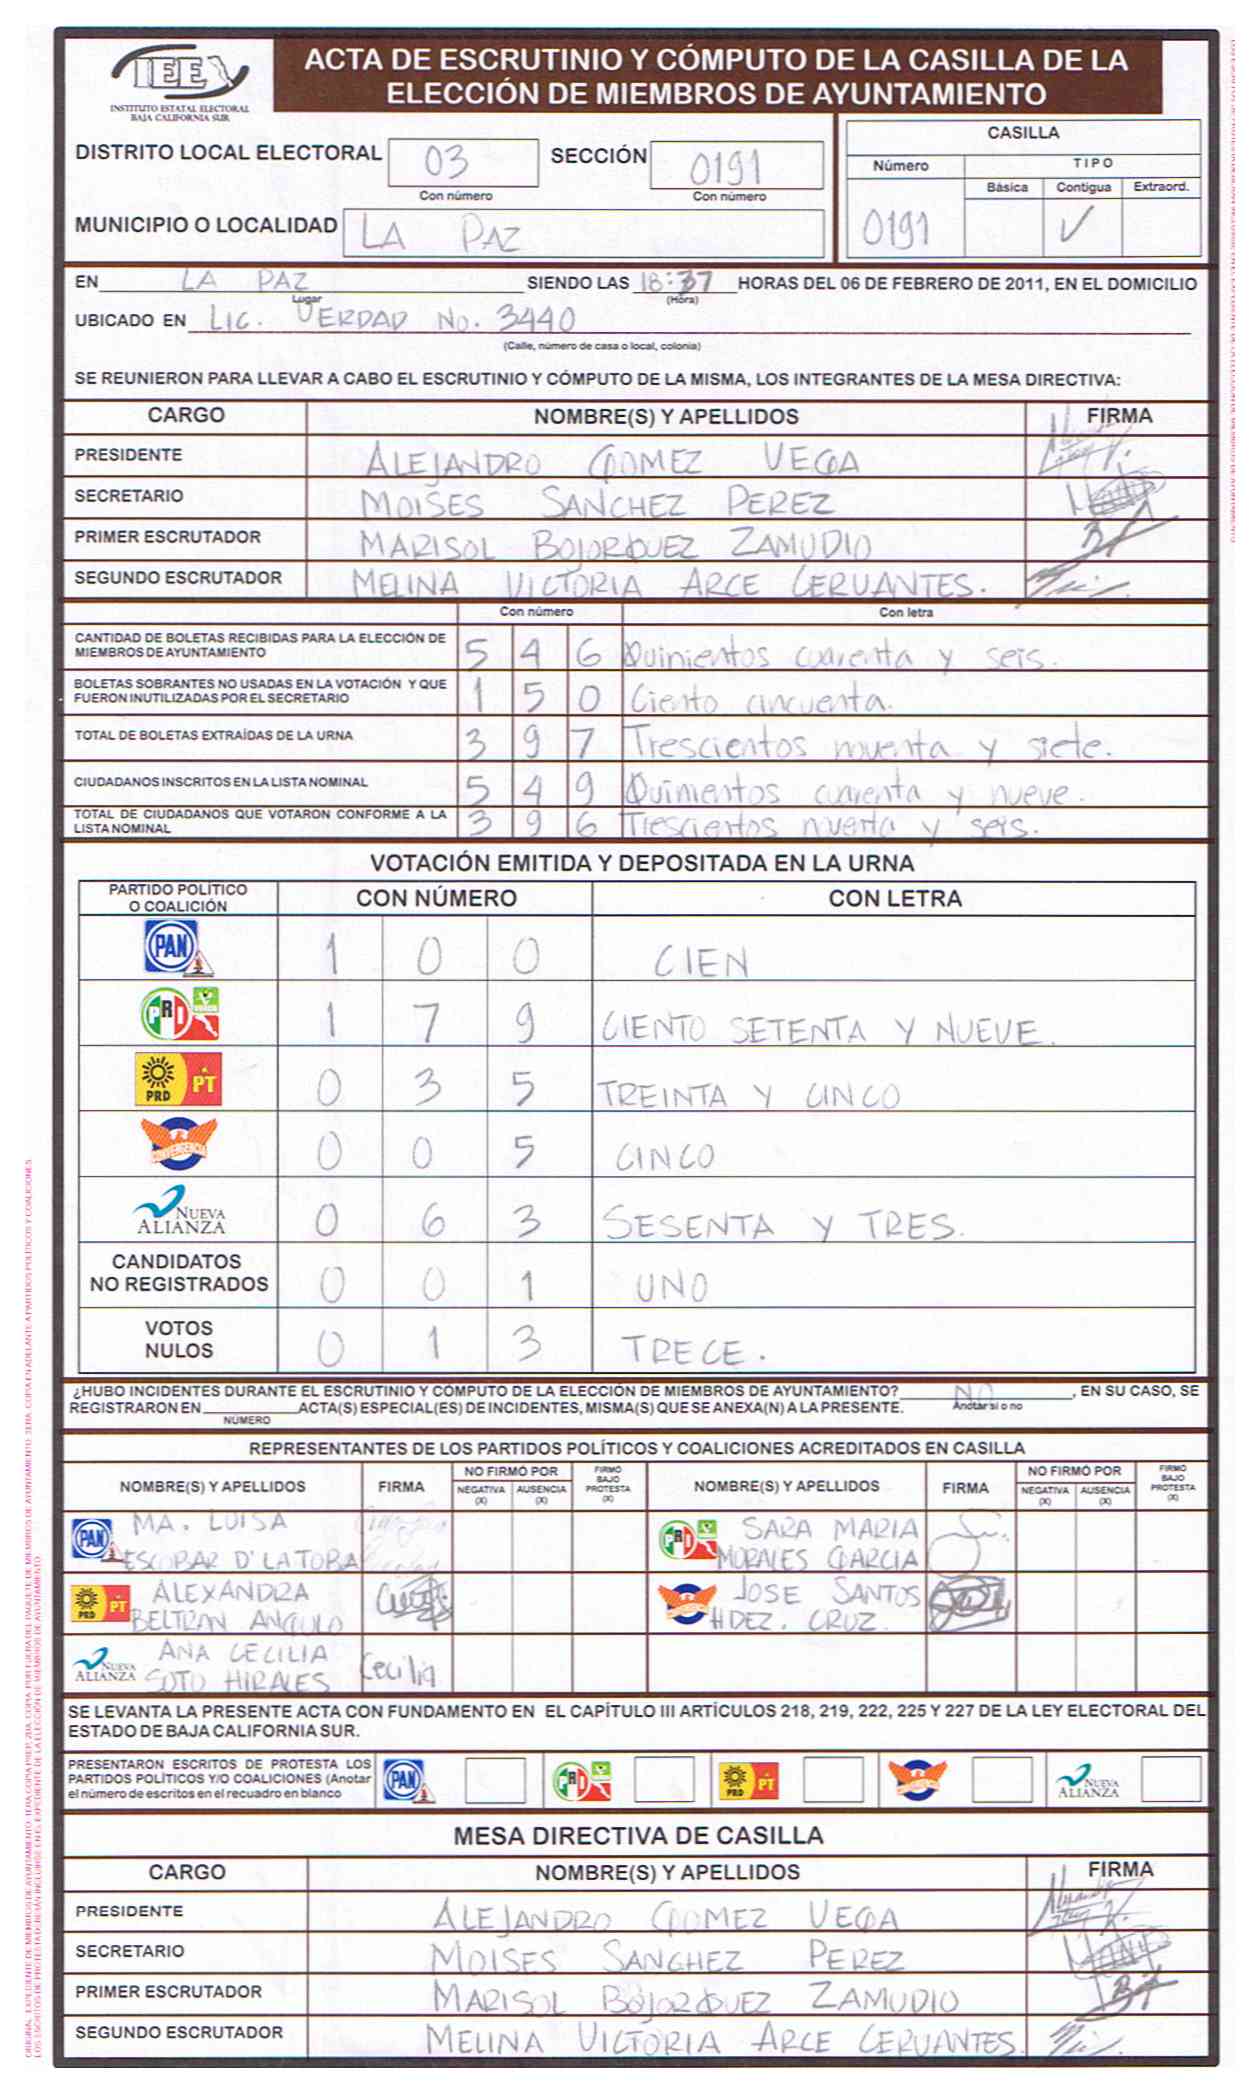 IEE
INSTITUTO ESTATAL ELECTORAL
BAJA CALIFORNIA SUR
ACTA DE ESCRUTINIO Y CÓMPUTO DE LA CASILLA DE LA
ELECCIÓN DE MIEMBROS DE AYUNTAMIENTO
DISTRITO LOCAL ELECTORAL 03 SECCIÓN 0191
Con número Con número
MUNICIPIO O LOCALIDAD LA PAZ
CASILLA
Número TIPO
Básica Contigua Extraord.
0191 ✓
EN LA PAZ SIENDO LAS 18:37 HORAS DEL 06 DE FEBRERO DE 2011, EN EL DOMICILIO
Lugar (Hora)
UBICADO EN LIC. VERDAD No. 3440
(Calle, número de casa o local, colonia)
SE REUNIERON PARA LLEVAR A CABO EL ESCRUTINIO Y CÓMPUTO DE LA MISMA, LOS INTEGRANTES DE LA MESA DIRECTIVA:
CARGO NOMBRE(S) Y APELLIDOS FIRMA
PRESIDENTE ALEJANDRO GOMEZ VEGA
SECRETARIO MOISES SANCHEZ PEREZ
PRIMER ESCRUTADOR MARISOL BOJORQUEZ ZAMUDIO
SEGUNDO ESCRUTADOR MELINA VICTORIA ARCE CERVANTES.
Con número Con letra
CANTIDAD DE BOLETAS RECIBIDAS PARA LA ELECCIÓN DE
MIEMBROS DE AYUNTAMIENTO 5 4 6 Quinientos cuarenta y seis.
BOLETAS SOBRANTES NO USADAS EN LA VOTACIÓN Y QUE
FUERON INUTILIZADAS POR EL SECRETARIO 1 5 0 Ciento cincuenta.
TOTAL DE BOLETAS EXTRAÍDAS DE LA URNA 3 9 7 Trescientos nuventa y siete.
CIUDADANOS INSCRITOS EN LA LISTA NOMINAL 5 4 9 Quinientos cuarenta y nueve.
TOTAL DE CIUDADANOS QUE VOTARON CONFORME A LA
LISTA NOMINAL 3 9 6 Trescientos nuventa y seis.
VOTACIÓN EMITIDA Y DEPOSITADA EN LA URNA
PARTIDO POLÍTICO
O COALICIÓN CON NÚMERO CON LETRA
PAN 1 0 0 CIEN
PRI 1 7 9 CIENTO SETENTA Y NUEVE.
PRD PT 0 3 5 TREINTA Y CINCO
CONVERGENCIA 0 0 5 CINCO
NUEVA ALIANZA 0 6 3 SESENTA Y TRES.
CANDIDATOS
NO REGISTRADOS 0 0 1 UNO
VOTOS
NULOS 0 1 3 TRECE.
¿HUBO INCIDENTES DURANTE EL ESCRUTINIO Y CÓMPUTO DE LA ELECCIÓN DE MIEMBROS DE AYUNTAMIENTO? NO, EN SU CASO, SE
REGISTRARON EN ACTA(S) ESPECIAL(ES) DE INCIDENTES, MISMA(S) QUE SE ANEXA(N) A LA PRESENTE. Anotar si o no
NÚMERO
REPRESENTANTES DE LOS PARTIDOS POLÍTICOS Y COALICIONES ACREDITADOS EN CASILLA
NOMBRE(S) Y APELLIDOS FIRMA NO FIRMÓ POR NEGATIVA (X) AUSENCIA (X) FIRMÓ BAJO PROTESTA (X) NOMBRE(S) Y APELLIDOS FIRMA NO FIRMÓ POR NEGATIVA (X) AUSENCIA (X) FIRMÓ BAJO PROTESTA (X)
PAN MA. LUISA
ESCOBAR D' LA TOBA
PRI SARA MARIA
MORALES GARCIA
PRD PT ALEXANDRA
BELTRAN ANGULO
CONVERGENCIA JOSE SANTOS
HDEZ. CRUZ.
NUEVA ALIANZA ANA CECILIA
SOTO HIRALES Cecilia
SE LEVANTA LA PRESENTE ACTA CON FUNDAMENTO EN EL CAPÍTULO III ARTÍCULOS 218, 219, 222, 225 Y 227 DE LA LEY ELECTORAL DEL
ESTADO DE BAJA CALIFORNIA SUR.
PRESENTARON ESCRITOS DE PROTESTA LOS
PARTIDOS POLÍTICOS Y/O COALICIONES (Anotar
el número de escritos en el recuadro en blanco
PAN PRI PRD PT NUEVA ALIANZA
MESA DIRECTIVA DE CASILLA
CARGO NOMBRE(S) Y APELLIDOS FIRMA
PRESIDENTE ALEJANDRO GOMEZ VEGA
SECRETARIO MOISES SANCHEZ PEREZ
PRIMER ESCRUTADOR MARISOL BOJORQUEZ ZAMUDIO
SEGUNDO ESCRUTADOR MELINA VICTORIA ARCE CERVANTES.